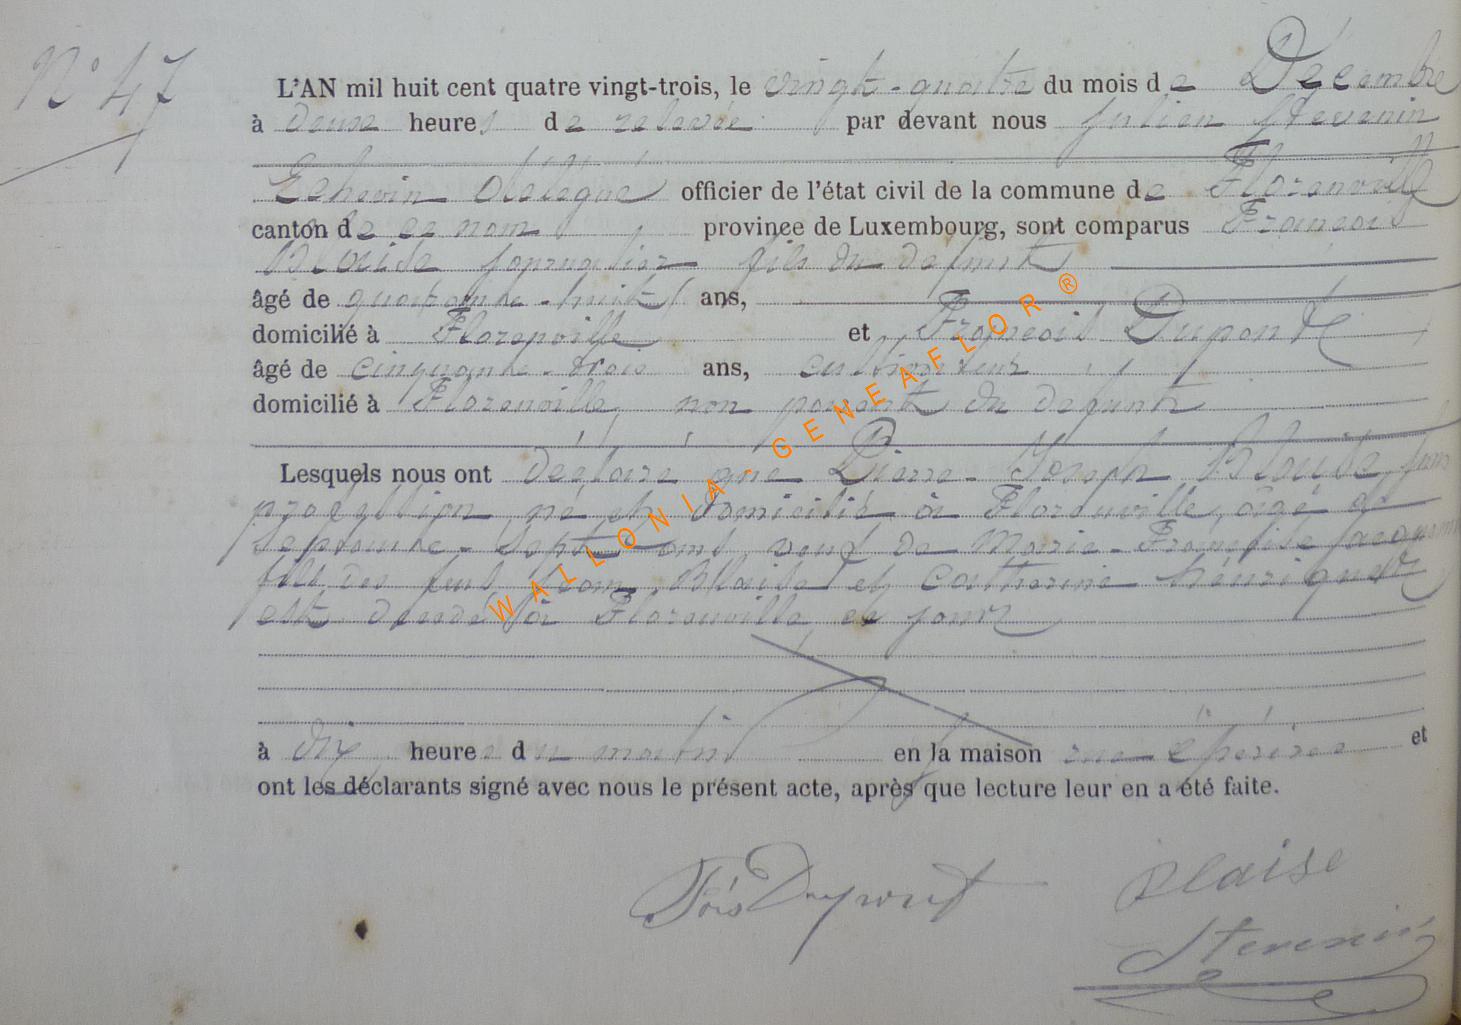 N° 47
L'AN mil huit cent quatre vingt-trois, le vingt-quatre du mois de Décembre
à deux heures de relevée par devant nous Julien Stevenin
Echevin délégué officier de l'état civil de la commune de Florenville
canton de ce nom province de Luxembourg, sont comparus François
Blaise journalier fils du défunt
âgé de quarante-huit ans,
domicilié à Florenville et François Dupont
âgé de cinquante-trois ans, cultivateur
domicilié à Florenville, non parent du defunt
Lesquels nous ont déclaré que Pierre-Joseph Blaise, sans
profession, né et domicilié à Florenville, âgé de
septante-sept ans, veuf de Marie-Françoise
fils des feus Jean Blaise et Catherine Henriquet
est décédé à Florenville, ce jour
à dix heures du matin en la maison rue et
ont les déclarants signé avec nous le présent acte, après que lecture leur en a été faite.
Fois Dupont Blaise
Stevenin
WALLONIA - GENEAFLOR ®